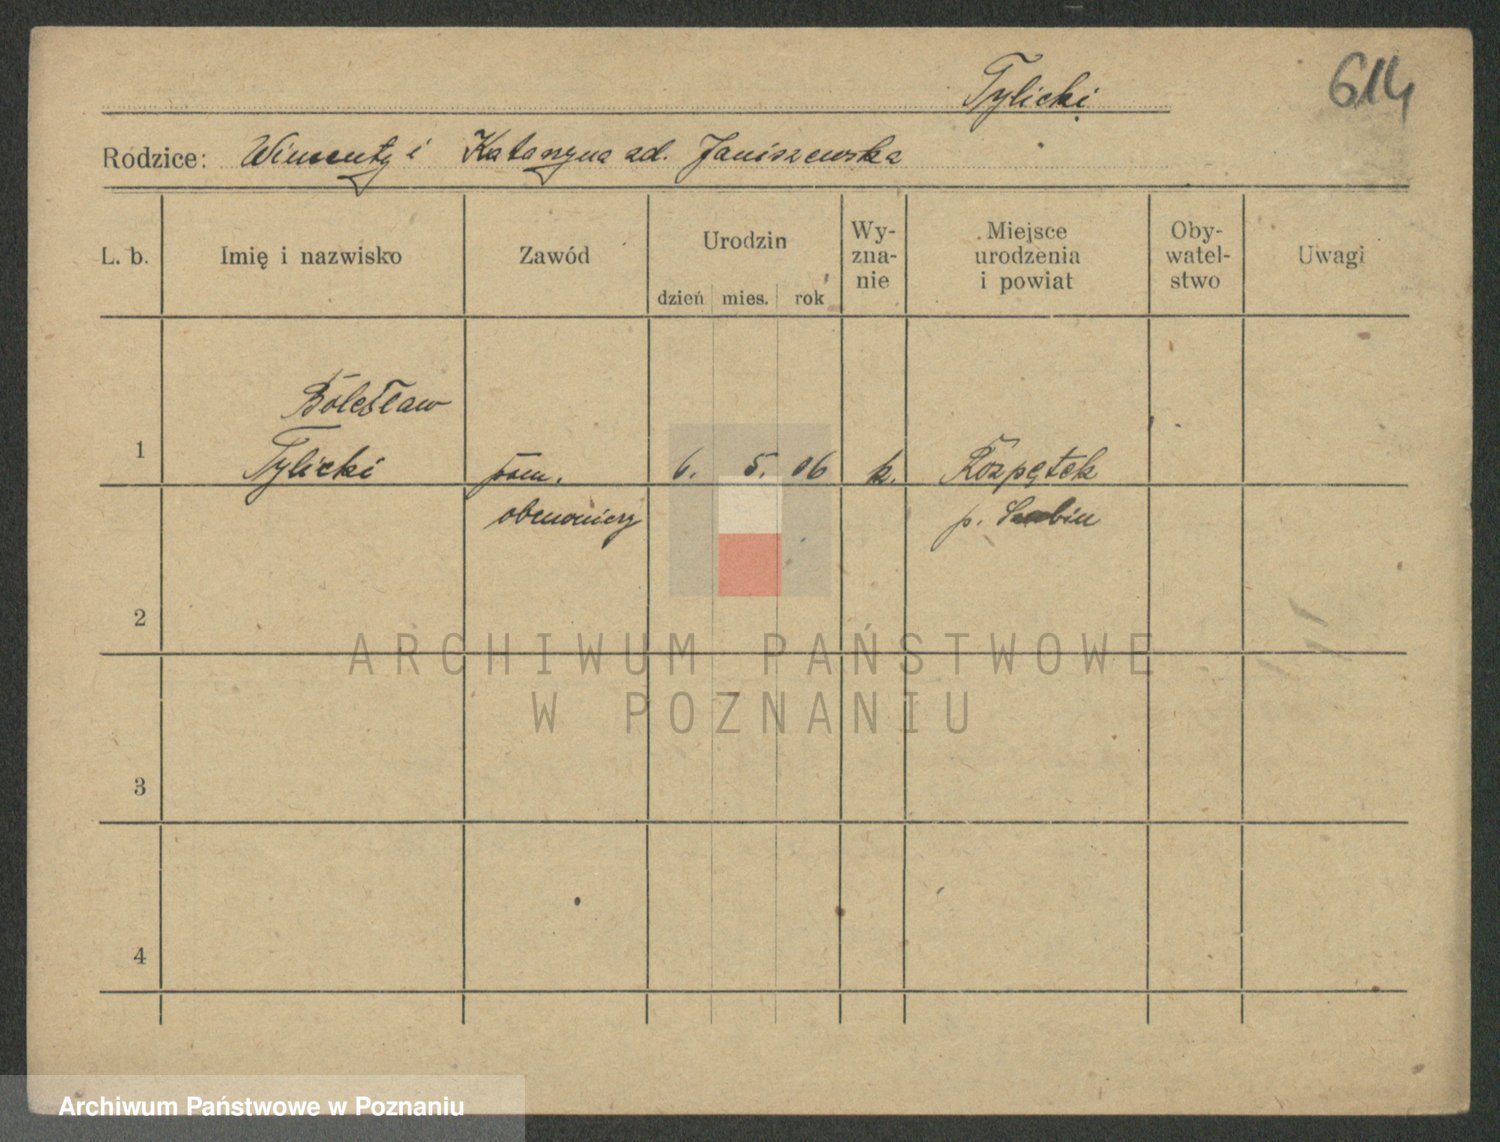 Tylicki
614
Rodzice: Wincenty i Katarzyna zd. Janiszewska
L. b.
Imię i nazwisko
Zawód
Urodzin
dzień mies. rok
Wy-
zna-
nie
Miejsce
urodzenia
i powiat
Oby-
watel-
stwo
Uwagi
Bolesław
1 Tylicki pom. 6. 5. 06 k. Rozpętek
p. Szubin
2
3
4
ARCHIWUM PAŃSTWOWE
W POZNANIU
Archiwum Państwowe w Poznaniu